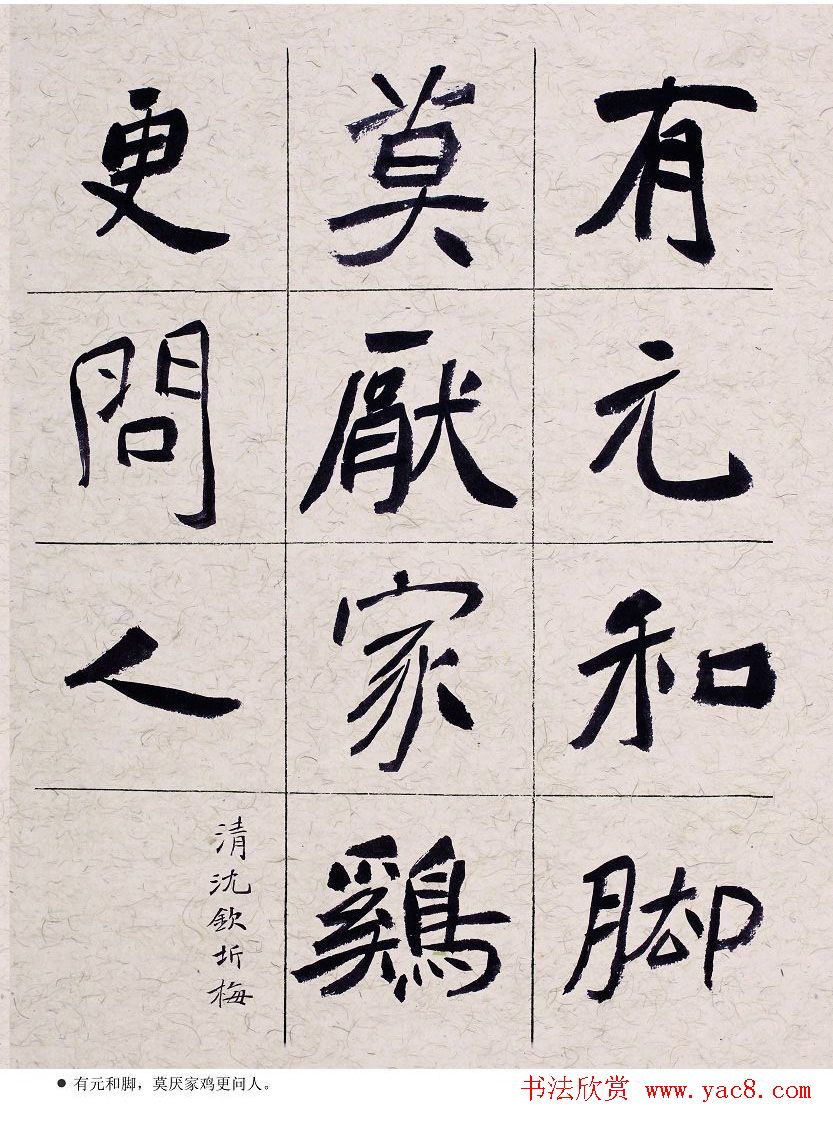 有元和脚
莫厭家鷄
更問人
清沈欽圻梅
● 有元和脚，莫厌家鸡更问人。
书法欣赏 www.yac8.com